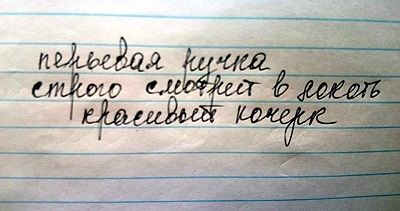 перьевая ручка
строго смотрит в локоть
красивый почерк